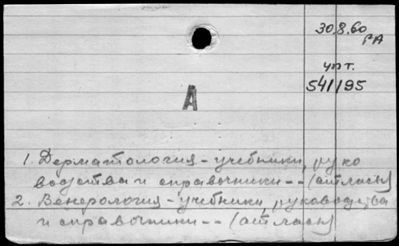 30.8.60
РА
упт.
541195
А
1. Дерматология - учебники, руко
водства и справочники -- (атласы)
2. Венерология - учебники, руководства
и справочники -- (атласы)